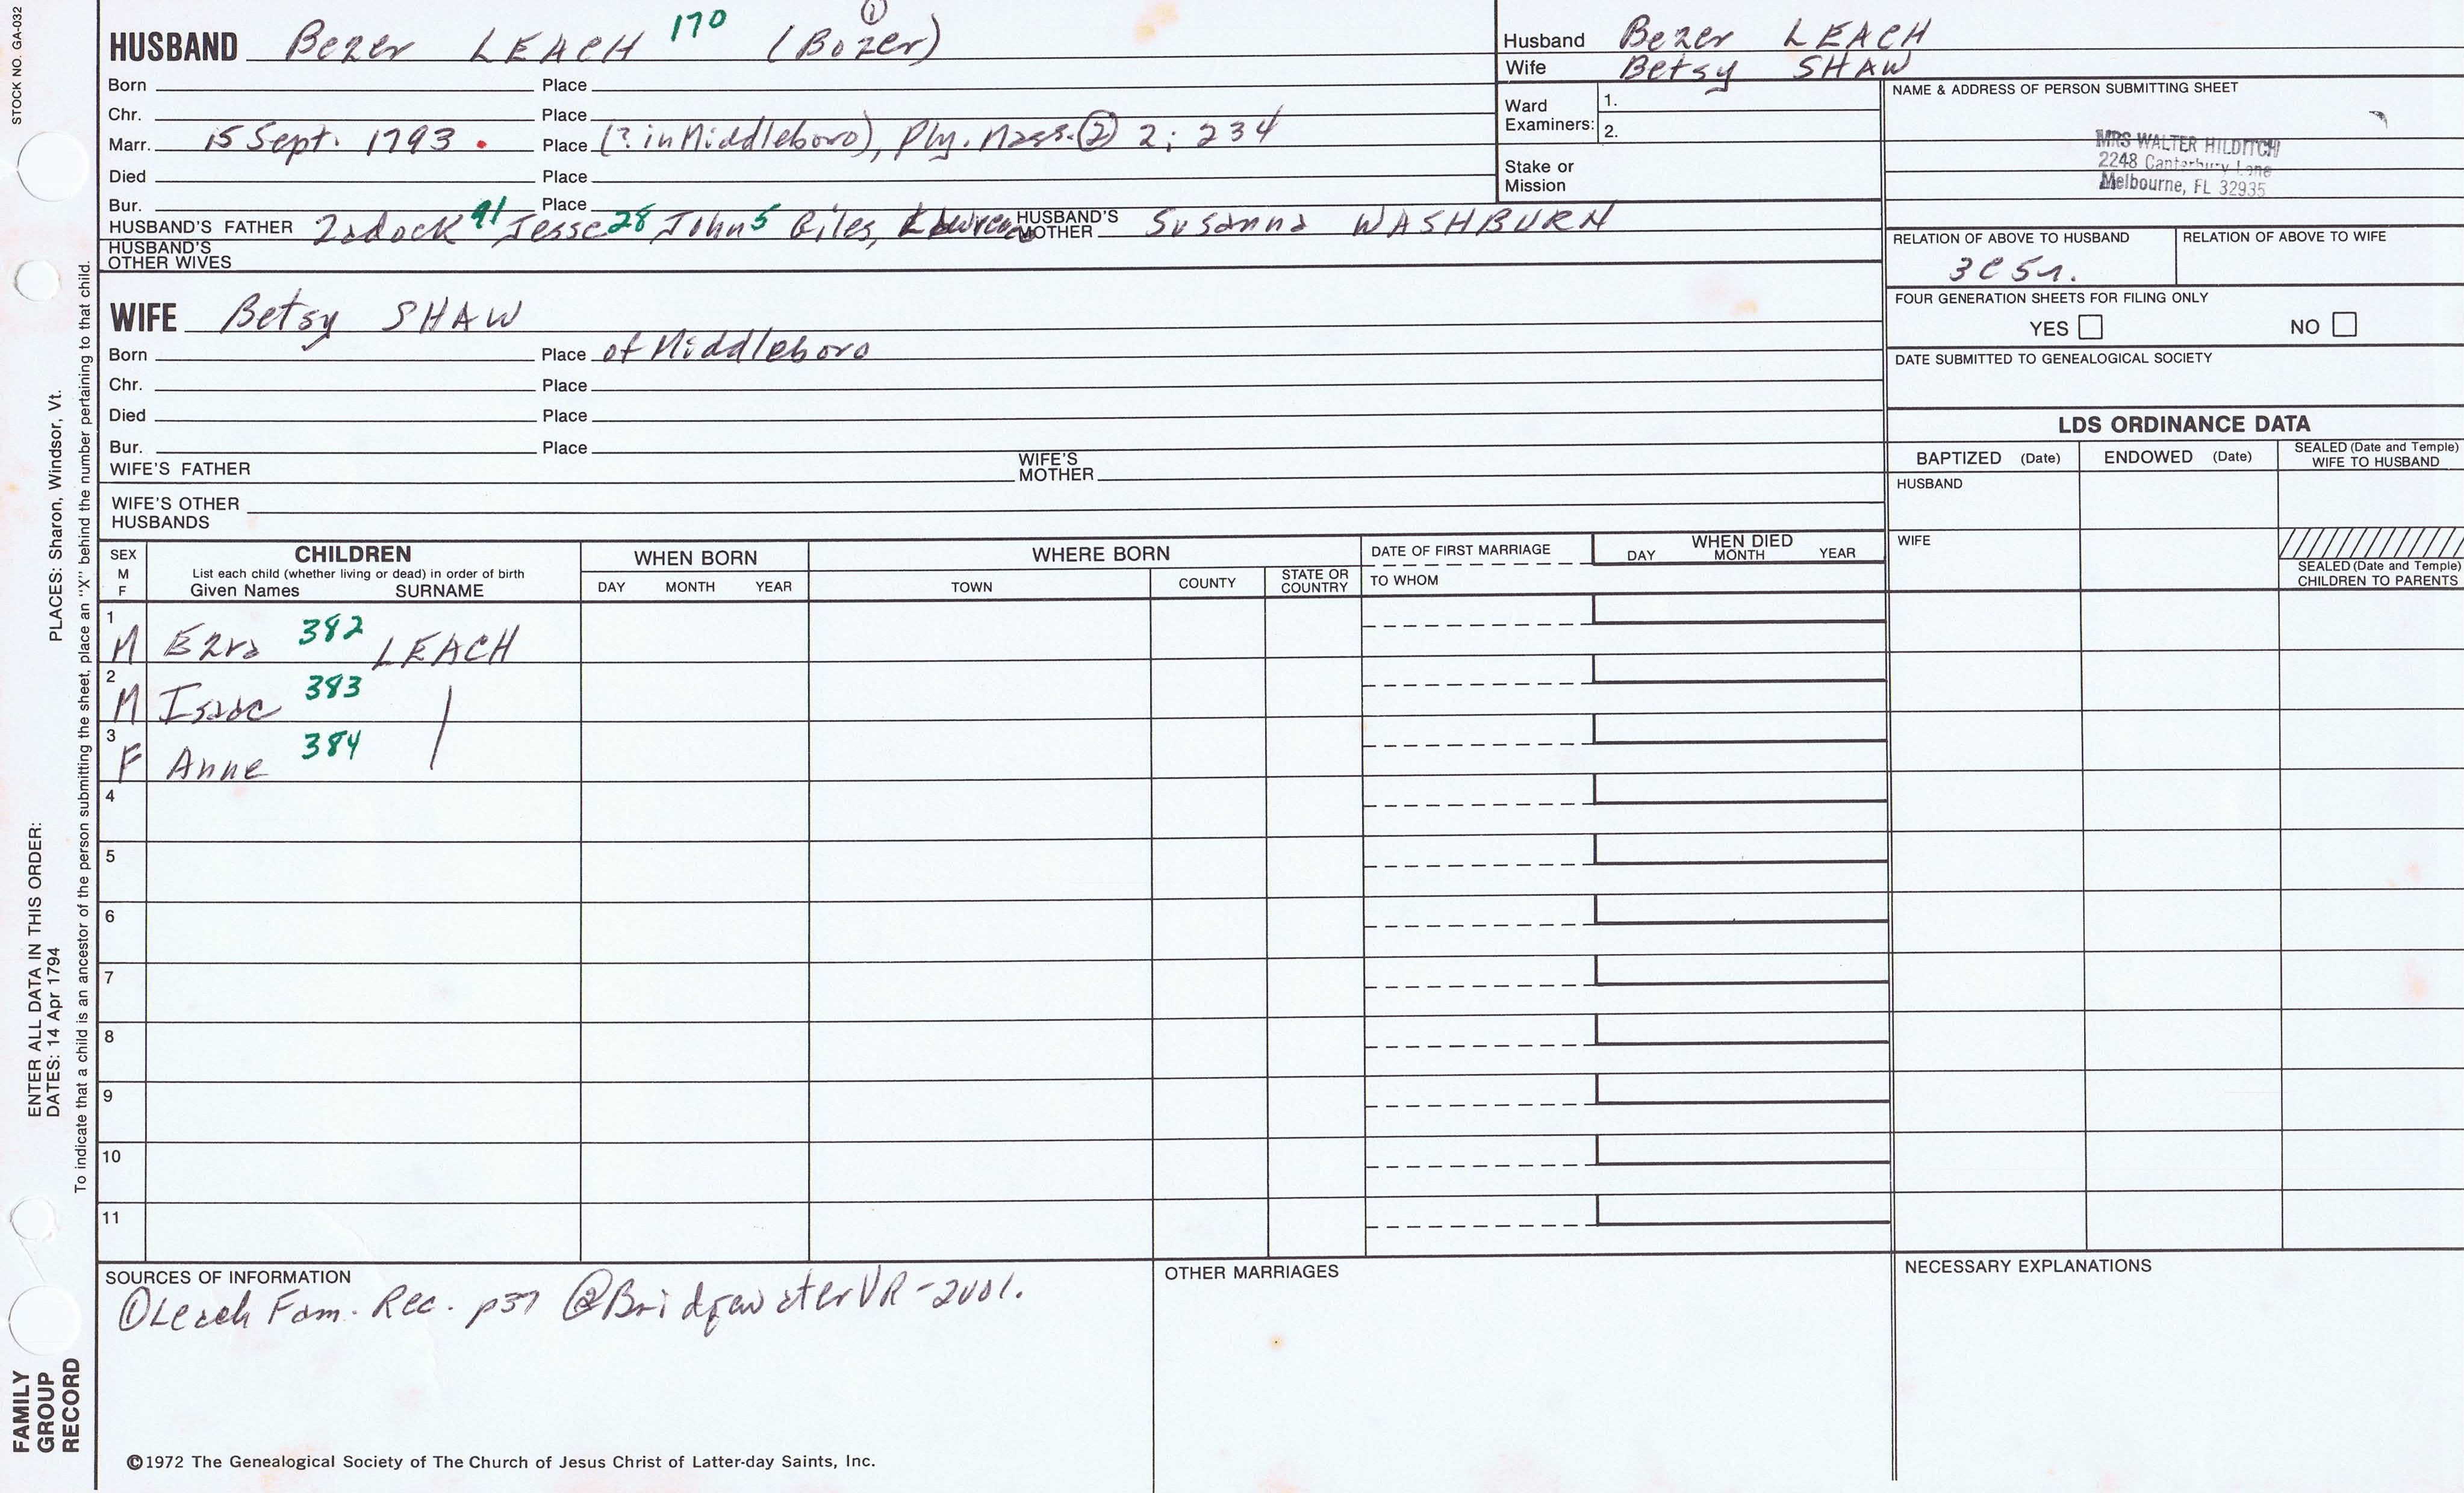 STOCK NO. GA-032
HUSBAND Bezer LEACH 170 (Bozer) ①
Born Place
Chr. Place
Marr. 15 Sept. 1793. Place (? in Middleboro), Ply. Mass. ② 2; 234
Died Place
Bur. Place
HUSBAND'S FATHER Zadock 91 Jesse 28 John 5 Giles, Lawrence HUSBAND'S MOTHER Susanna WASHBURN
HUSBAND'S OTHER WIVES
WIFE Betsy SHAW
Born Place of Middleboro
Chr. Place
Died Place
Bur. Place
WIFE'S FATHER WIFE'S MOTHER
WIFE'S OTHER HUSBANDS
Husband Bezer LEACH
Wife Betsy SHAW
Ward Examiners: 1.
2.
Stake or Mission
NAME & ADDRESS OF PERSON SUBMITTING SHEET
MRS WALTER HILDITCH
2248 Canterbury Lane
Melbourne, FL 32935
RELATION OF ABOVE TO HUSBAND RELATION OF ABOVE TO WIFE
3C5r.
FOUR GENERATION SHEETS FOR FILING ONLY
YES NO
DATE SUBMITTED TO GENEALOGICAL SOCIETY
LDS ORDINANCE DATA
BAPTIZED (Date) ENDOWED (Date) SEALED (Date and Temple) WIFE TO HUSBAND
HUSBAND
WIFE
SEALED (Date and Temple) CHILDREN TO PARENTS
SEX M F CHILDREN WHEN BORN WHERE BORN DATE OF FIRST MARRIAGE WHEN DIED
List each child (whether living or dead) in order of birth
Given Names SURNAME DAY MONTH YEAR TOWN COUNTY STATE OR COUNTRY TO WHOM DAY MONTH YEAR
1 M Ezra 382 LEACH
2 M Isaac 383 |
3 F Anne 384
4
5
6
7
8
9
10
11
SOURCES OF INFORMATION
① Leach Fam. Rec. p37 ② Bridgewater VR - 2vol.
OTHER MARRIAGES
NECESSARY EXPLANATIONS
©1972 The Genealogical Society of The Church of Jesus Christ of Latter-day Saints, Inc.
FAMILY GROUP RECORD
ENTER ALL DATA IN THIS ORDER:
DATES: 14 Apr 1794 PLACES: Sharon, Windsor, Vt.
To indicate that a child is an ancestor of the person submitting the sheet, place an "X" behind the number pertaining to that child.